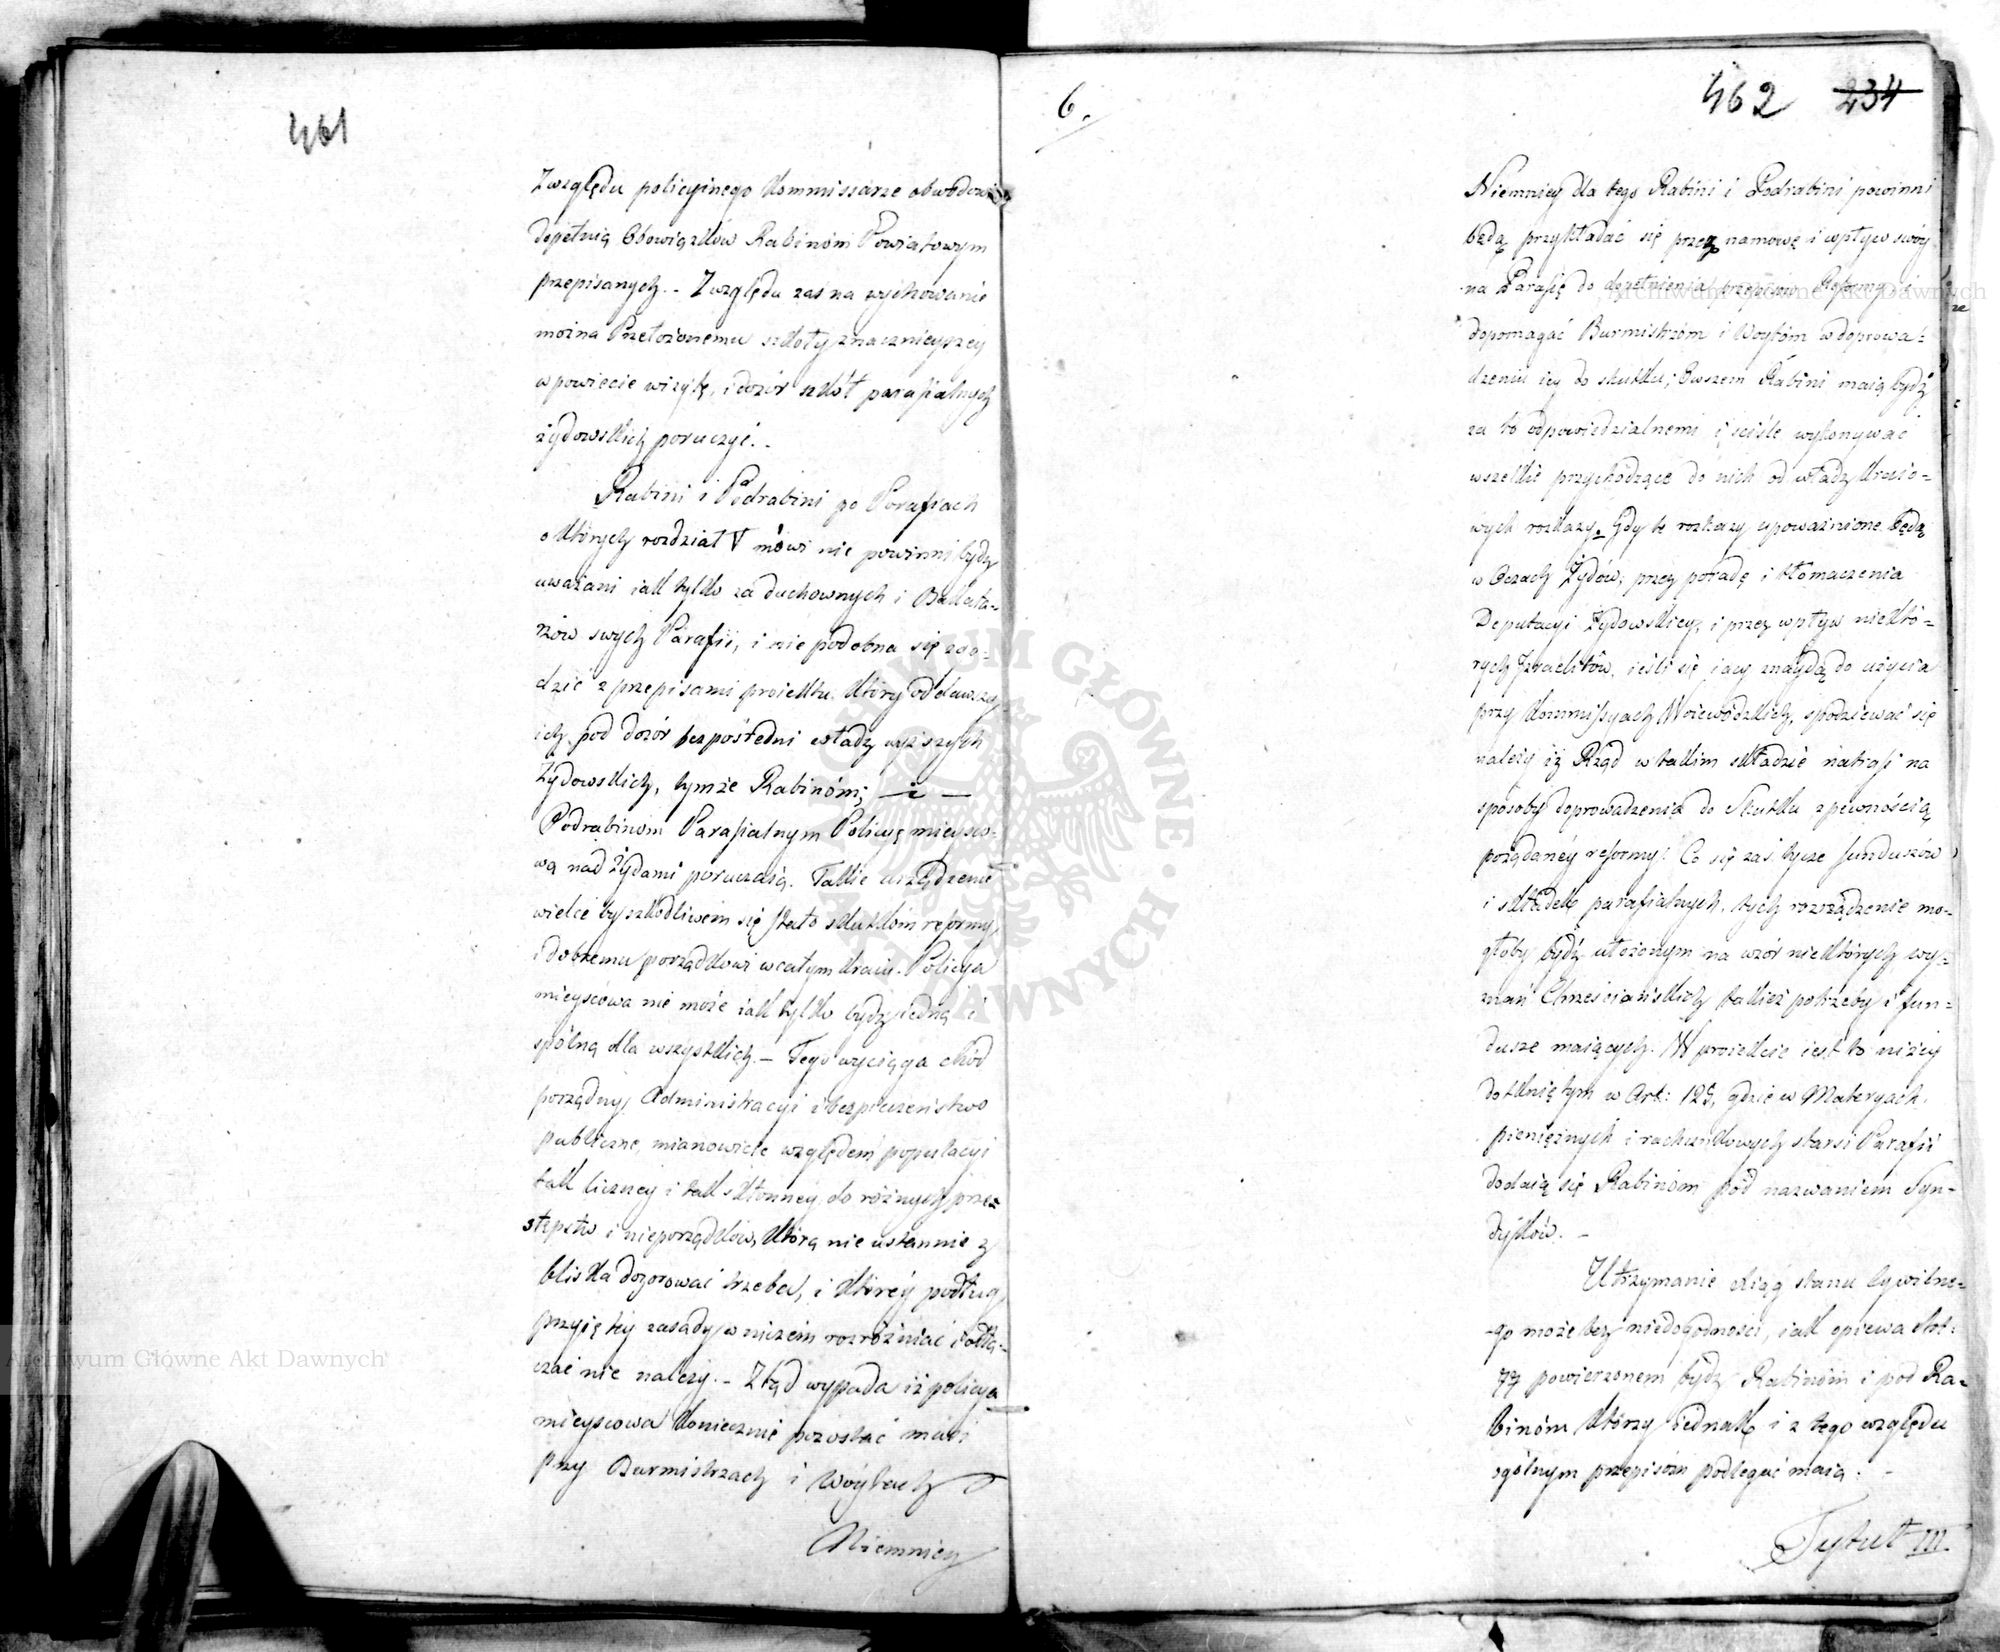 461
Zwzględu policyinego Kommissarze obwodowi
dopełnią Obowiązków Rabinóm Powiatowym
przepisanych. - Zwzględu zas na wychowanie
można Przełożonemu szkoły znacznieyszey
w powiecie wizytę, i dozór szkół parafialnych
żydowskich poruczyć. -
Rabini i Podrabini po Parafiach
o których rozdział V mówi nie powinni bydź
uważani iak tylko za duchownych i Bakala-
rzów swych Parafii, i nie podobna się zgo-
dzić z przepisami proiektu. który oddawszy
ich pod dozór bezpośredni władz wyższych
Żydowskich, tymże Rabinóm; — i —
Podrabinom Parafialnym Policyę mieysco-
wą nad Żydami poruczaią. Takie urządzenie
wielce by szkodliwem się stało skutkóm reformy,
i dobremu porządkowi w całym kraiu. Policya
mieyscowa nie może iak tylko bydź iedną i
spólną dla wszystkich. - Tego wyciąga chód
porządny Administracyi i bezpieczeństwo
publiczne, mianowicie względem populacyi
tak liczney i tak skłonney do różnych prze-
stępstw i nieporządków, którą nie ustannie z
bliska dozorować trzeba, i którey podług
przyiętey zasady w niczem rozróżniać i odłą-
czać nie należy. - Ztąd wypada iż policya
mieyscowa koniecznie pozostać musi
przy Burmistrzach i Wóytach
Niemniey
6.
462 234
Niemniey dla tego Rabini i Podrabini powinni
będą przykładać się przez namowę i wpływ swóy
na Parafię do dopełnienia przepisów Reformy i
dopomagać Burmistrzom i Woytóm w doprowa-
dzeniu iey do skutku; Owszem Rabini maią bydź
za to odpowiedzialnemi i ściśle wykonywać
wszelkie przychodzące do nich od władz kraio-
wych rozkazy. Gdy te rozkazy upoważnione będą
w Oczach Żydów, przez poradę i tłomaczenia
Deputacyi Żydowskiey, i przez wpływ niektó-
rych Izraelitów, ieśli się iacy znaydą do użycia
przy Kommissyach Woiewódzkich, spodziewać się
należy iż Rząd w takim składzie natrafi na
sposoby doprowadzenia do Skutku z pewnością
pożądaney reformy! Co się zaś tycze funduszów
i składek parafialnych, tych rozrządzenie mo-
głoby bydź ułożonym na wzór niektórych wy-
znań Chrześciańskich takież potrzeby i fun-
dusze maiących. W proiekcie iest to niżey
dotkniętym w Art: 125, gdzie w Materyach
pieniężnych i rachunkowych starsi Parafii
dodaią się Rabinóm pod nazwaniem Syn-
dyków. -
Utrzymanie Xiąg stanu Cywilne-
go może bez niedogodności, iak opiewa Art:
77 powierzonem bydź Rabinóm i pod Ra-
binóm którzy iednak i z tego względu
ogólnym przepisóm podlegać maią. -
Tytuł III
Archiwum Główne Akt Dawnych
Archiwum Główne Akt Dawnych
ARCHIWUM GŁÓWNE AKT DAWNYCH